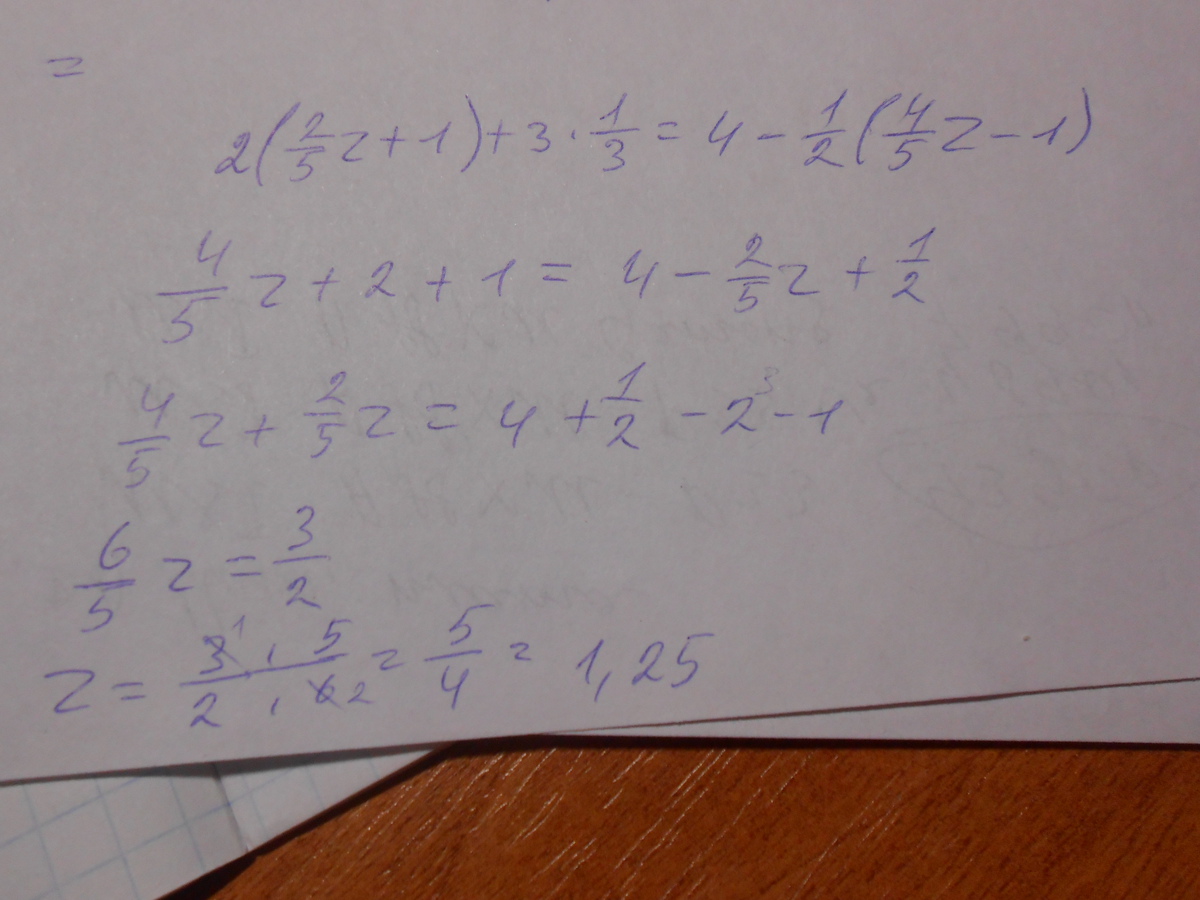 =
2(2/5 z + 1) + 3 · 1/3 = 4 - 1/2 (4/5 z - 1)
4/5 z + 2 + 1 = 4 - 2/5 z + 1/2
4/5 z + 2/5 z = 4 + 1/2 - 2 ³ - 1
6/5 z = 3/2
z = 3 ¹ · 5 / 2 · 6 2 = 5/4 = 1,25